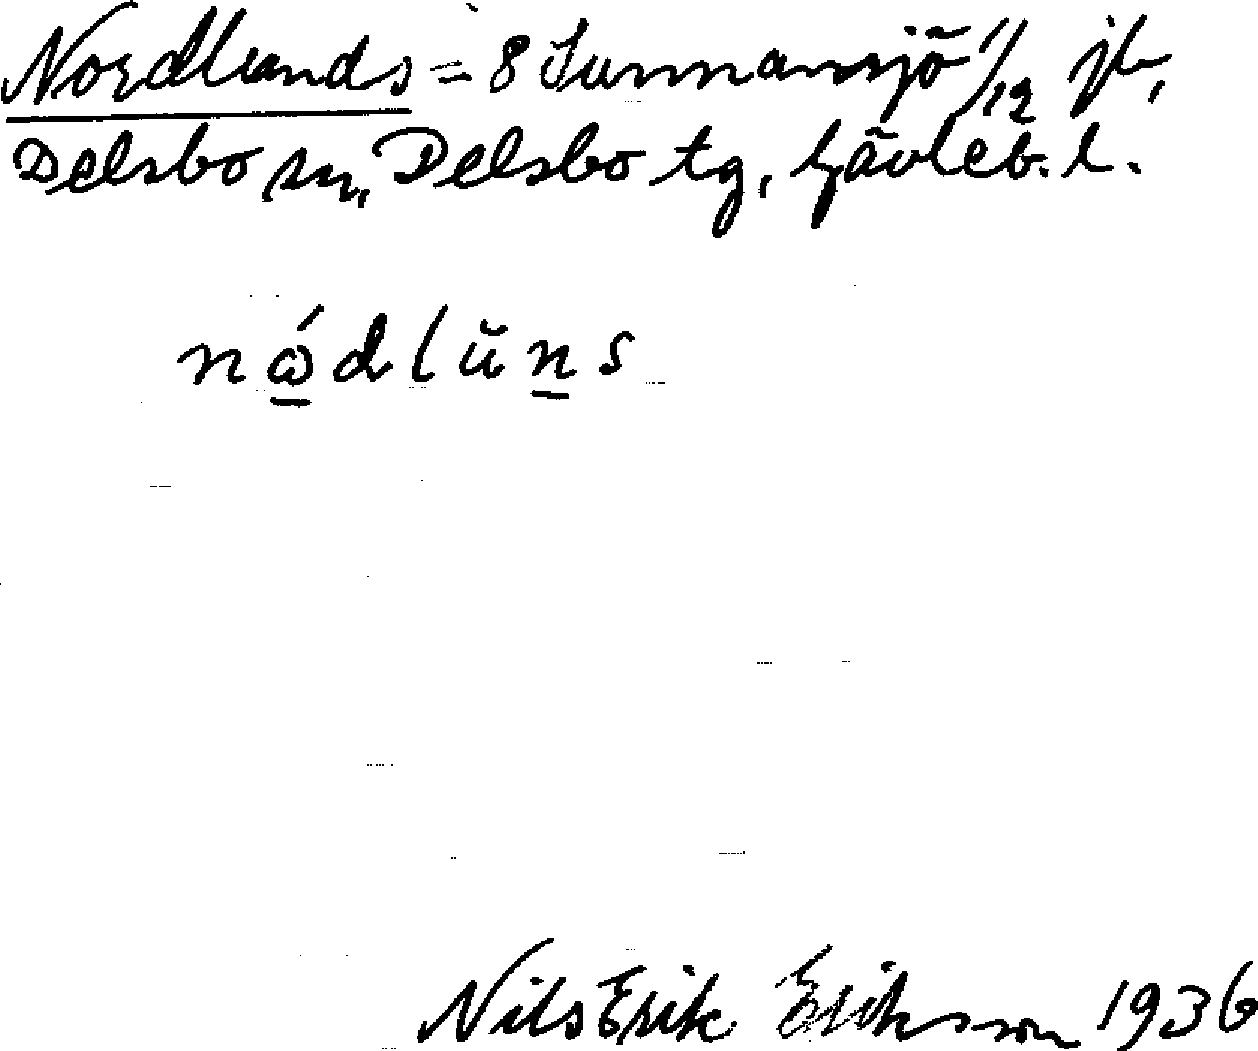 Nordlunds = 8 Sunnansjö 1/12 jb,
Delsbo sn, Delsbo tg, Gävleb. l.
nǿdlŭn̲s
Nils Erik Eriksson 1936